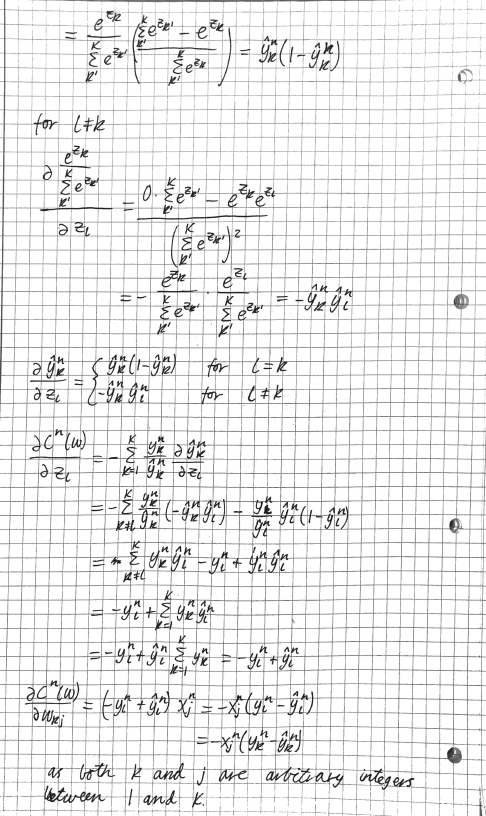 = e^{z_k} / Σ_{k'}^{K} e^{z_{k'}} ( (Σ_{k'}^{K} e^{z_{k'}} - e^{z_k}) / Σ_{k'}^{K} e^{z_k} ) = ŷ_k^n (1 - ŷ_k^n)
for l ≠ k
∂ (e^{z_k} / Σ_{k'}^{K} e^{z_{k'}}) / ∂z_l = (0 · Σ_{k'}^{K} e^{z_{k'}} - e^{z_k} e^{z_l}) / (Σ_{k'}^{K} e^{z_{k'}})^2
= - e^{z_k} / Σ_{k'}^{K} e^{z_{k'}} · e^{z_l} / Σ_{k'}^{K} e^{z_{k'}} = -ŷ_k^n ŷ_l^n
∂ŷ_k^n / ∂z_l = { ŷ_k^n (1 - ŷ_k^n) for l = k
-ŷ_k^n ŷ_l^n for l ≠ k
∂C^n(w) / ∂z_l = - Σ_{k=1}^{K} y_k^n / ŷ_k^n ∂ŷ_k^n / ∂z_l
= - Σ_{k≠l}^{K} y_k^n / ŷ_k^n (-ŷ_k^n ŷ_l^n) - y_l^n / ŷ_l^n ŷ_l^n (1 - ŷ_l^n)
= Σ_{k≠l}^{K} y_k^n ŷ_l^n - y_l^n + y_l^n ŷ_l^n
= -y_l^n + Σ_{k=1}^{K} y_k^n ŷ_l^n
= -y_l^n + ŷ_l^n Σ_{k=1}^{K} y_k^n = -y_l^n + ŷ_l^n
∂C^n(w) / ∂w_{kj} = (-y_l^n + ŷ_l^n) x_j^n = -x_j^n (y_l^n - ŷ_l^n)
= -x_j^n (y_k^n - ŷ_k^n)
as both k and j are arbitrary integers
between 1 and K.